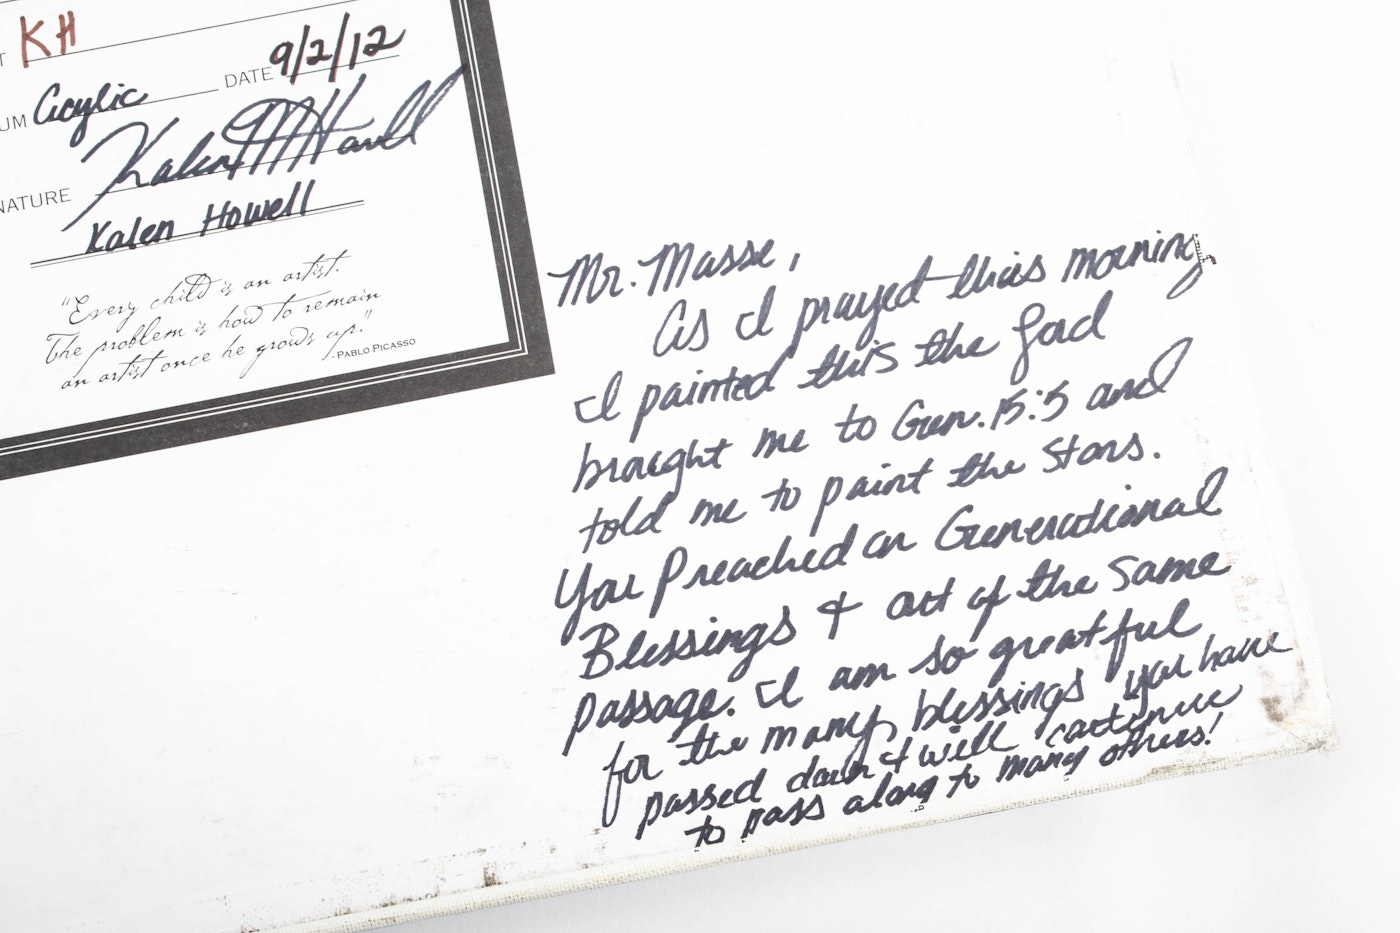 T KH
UM Acrylic DATE 9/2/12
NATURE Kalen M Howell
Kalen Howell
"Every child is an artist.
The problem is how to remain
an artist once he grows up."
-PABLO PICASSO
Mr. Masse,
As I prayed this morning
I painted this the Lord
brought me to Gen. 15:5 and
told me to paint the stars.
You Preached on Generational
Blessings & out of the same
passage. I am so greatful
for the many blessings you have
passed down & will continue
to pass along to many others!